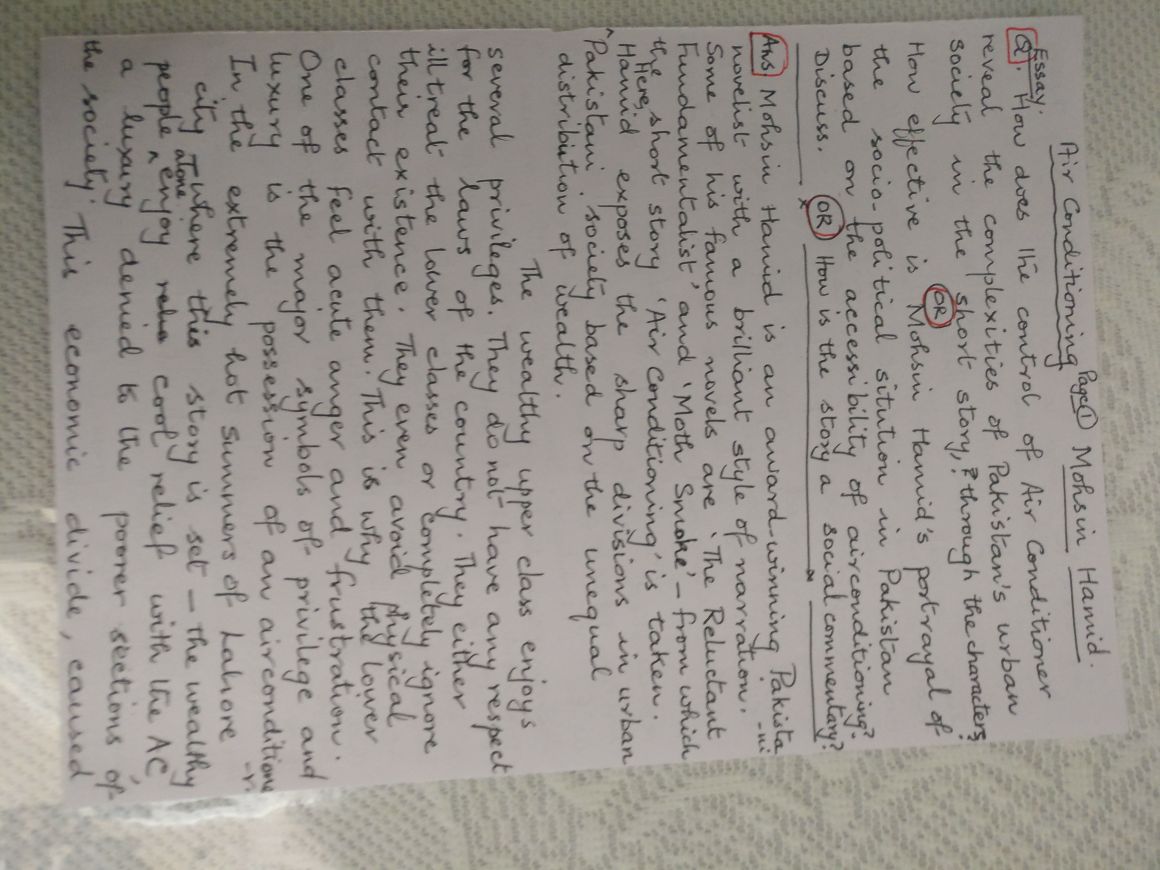 Air Conditioning Page ① Mohsin Hamid.
Essay.
Q. How does the control of Air Conditioner
reveal the complexities of Pakistan's urban
society in the short story,? through the characters?
OR
How effective is Mohsin Hamid's portrayal of
the socio-political sitution in Pakistan
based on the accessibility of airconditioning?
Discuss. OR How is the story a social commentary?
Ans Mohsin Hamid is an award-winning Pakista
-ni
novelist with a brilliant style of narration.
Some of his famous novels are 'The Reluctant
Fundamentalist' and 'Moth Smoke' – from which
the short story 'Air Conditioning' is taken.
Here,
Hamid exposes the sharp divisions in urban
Pakistani society based on the unequal
distribution of wealth.
The wealthy upper class enjoys
several privileges. They do not have any respect
for the laws of the country. They either
illtreat the lower classes or completely ignore
their existence. They even avoid physical
contact with them. This is why the lower
classes feel acute anger and frustration.
One of the major symbols of privilege and
luxury is the possession of an airconditione
-r.
In the extremely hot summers of Lahore
city – where this story is set – the wealthy
alone
people ^ enjoy cool relief with the AC,
a luxury denied to the poorer sections of
the society.
This economic divide, caused